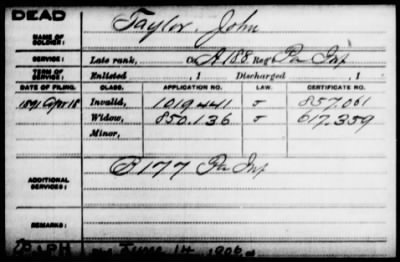 DEAD
NAME OF SOLDIER: Taylor, John
SERVICE: Late rank, Co. A, 188 Reg't Pa Inf
TERM OF SERVICE: Enlisted , 1 Discharged , 1
DATE OF FILING. CLASS. APPLICATION NO. LAW. CERTIFICATE NO.
1891 Apr 18 Invalid, 1019.441 857.061
Widow, 850.136 617.359
Minor,
ADDITIONAL SERVICES: B 177 Pa Inf
REMARKS:
June 14